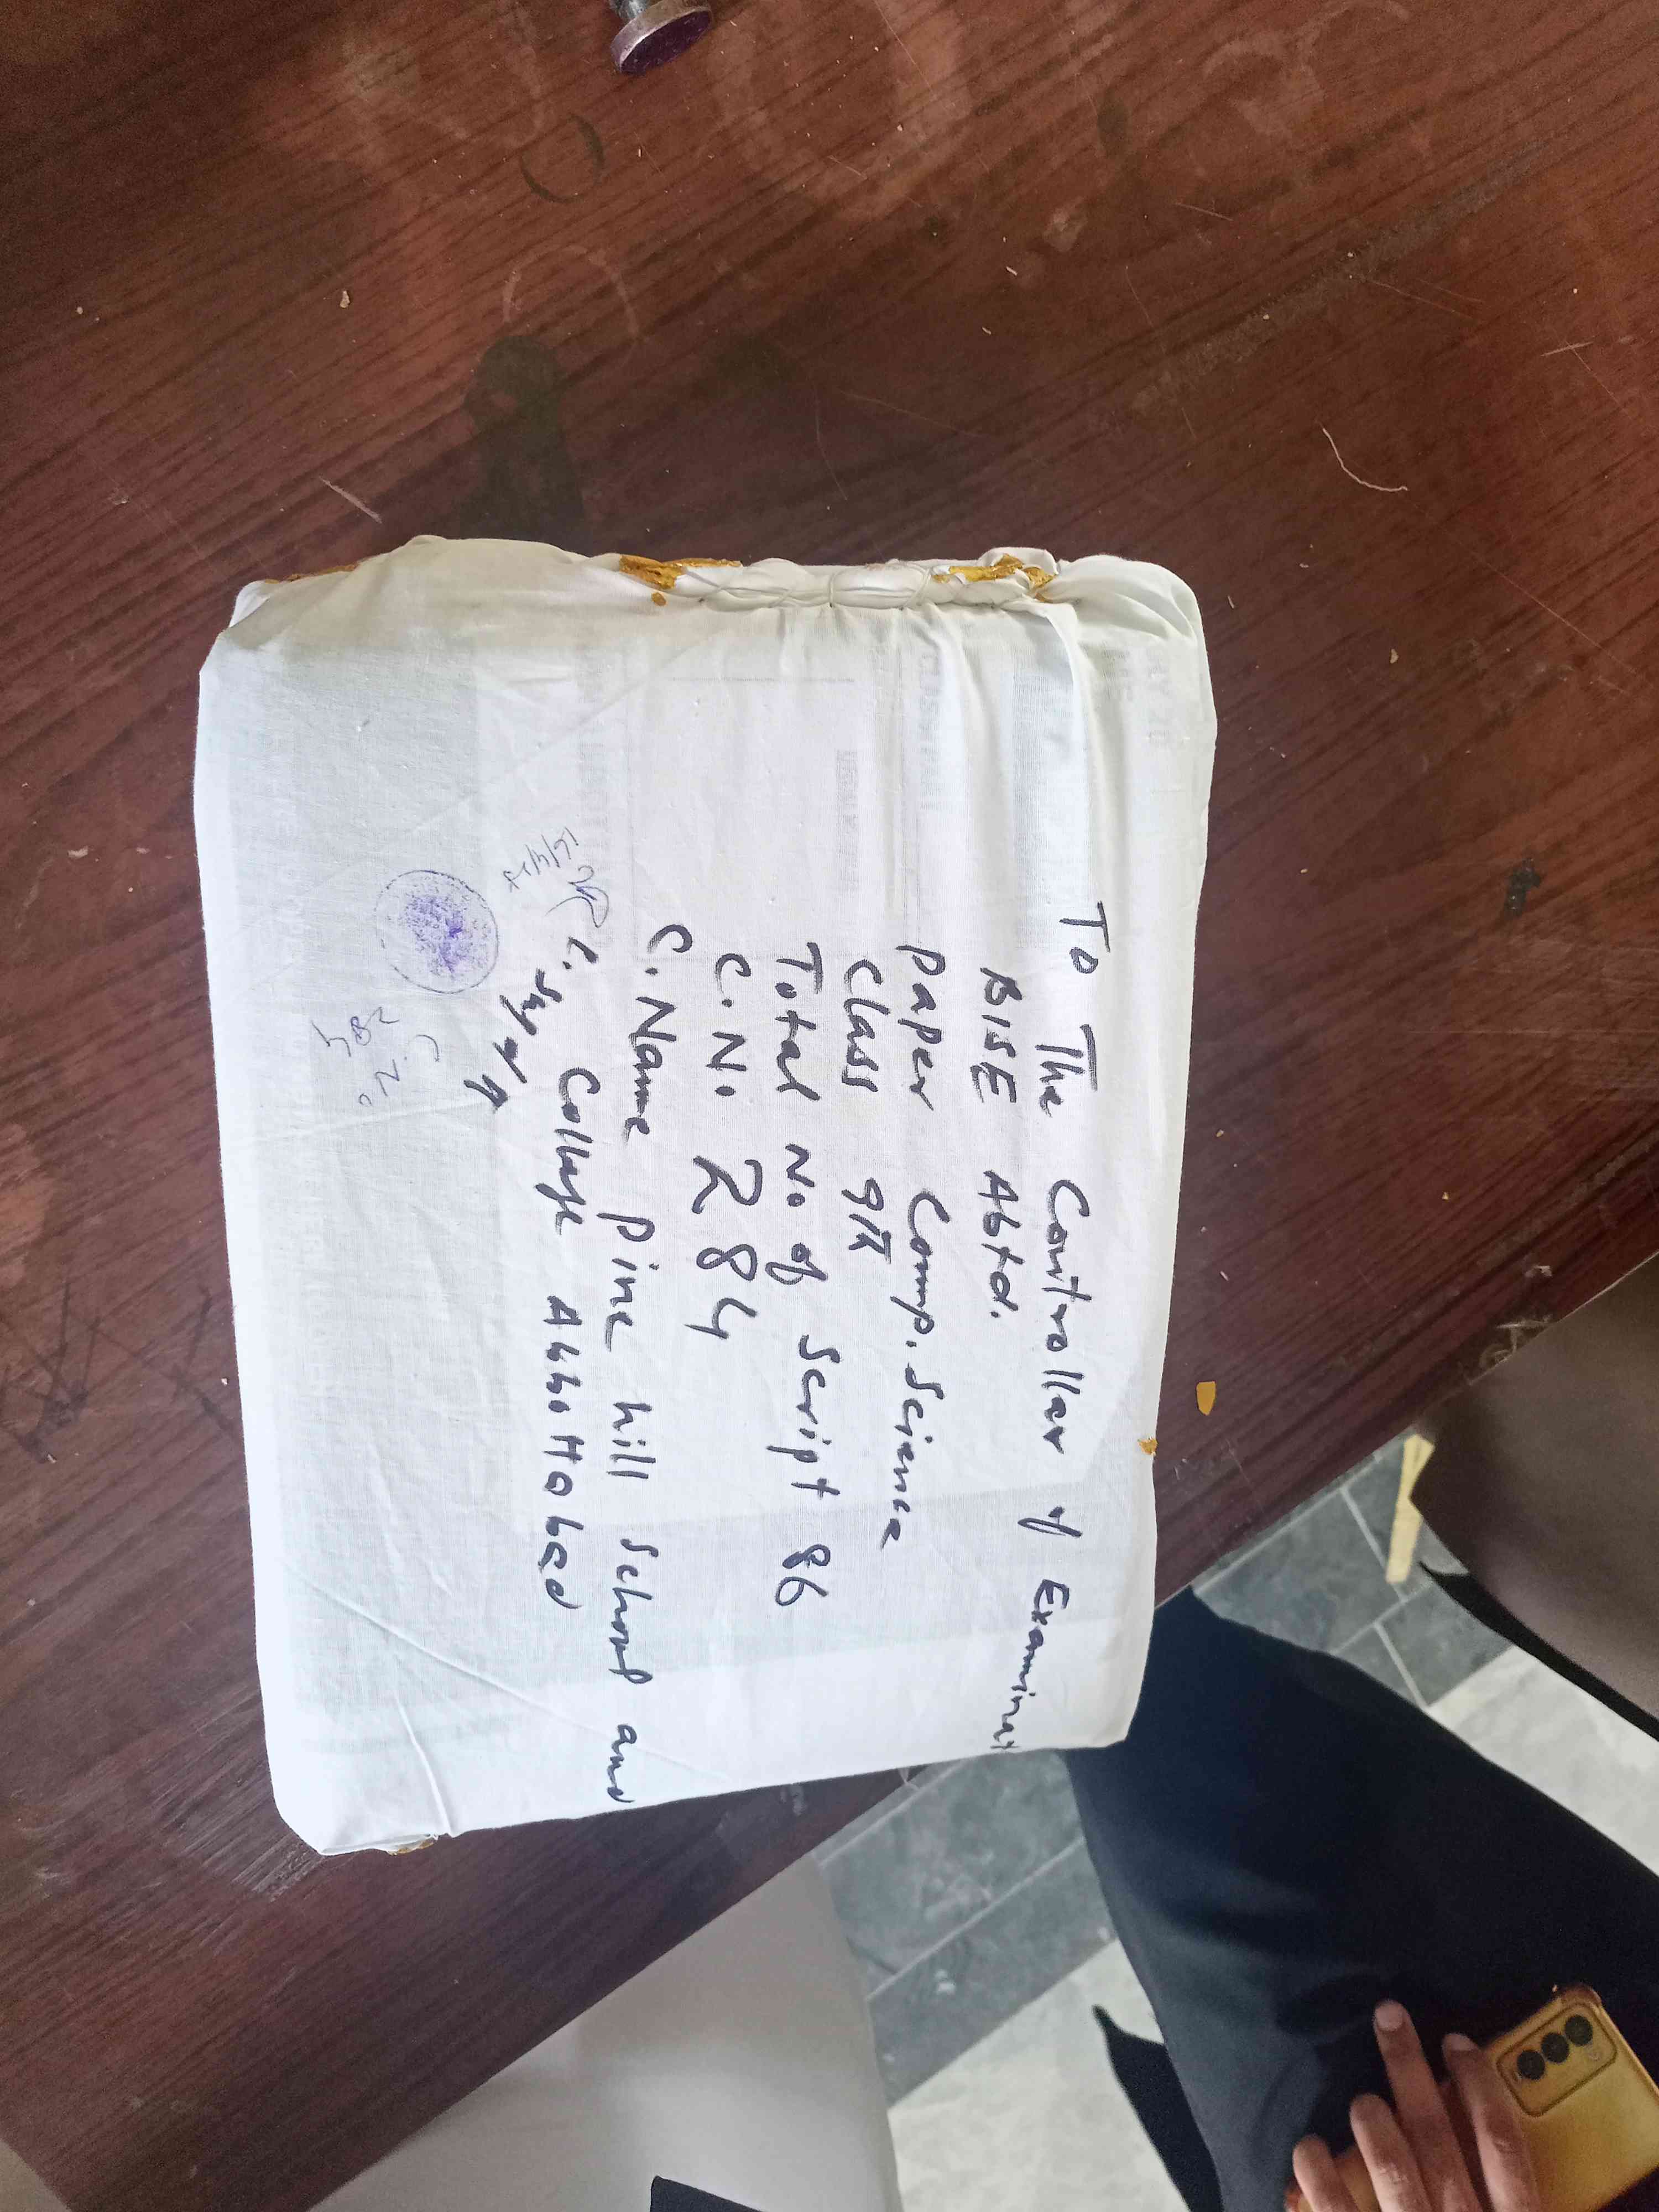 To The Controller of Examinat
BISE Abtd.
Paper Comp. Science
Class 9th
Total No of Script 86
C.No R84
C.Name Pine hill School and
College Abbottabad